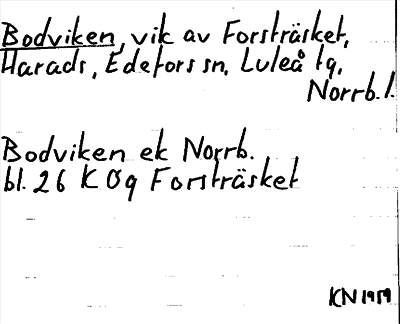 Bodviken, vik av Forsträsket,
Harads, Edefors sn, Luleå tg,
Norrb. l.
Bodviken ek Norrb.
bl. 26 K Ög Forsträsket
KN 1959